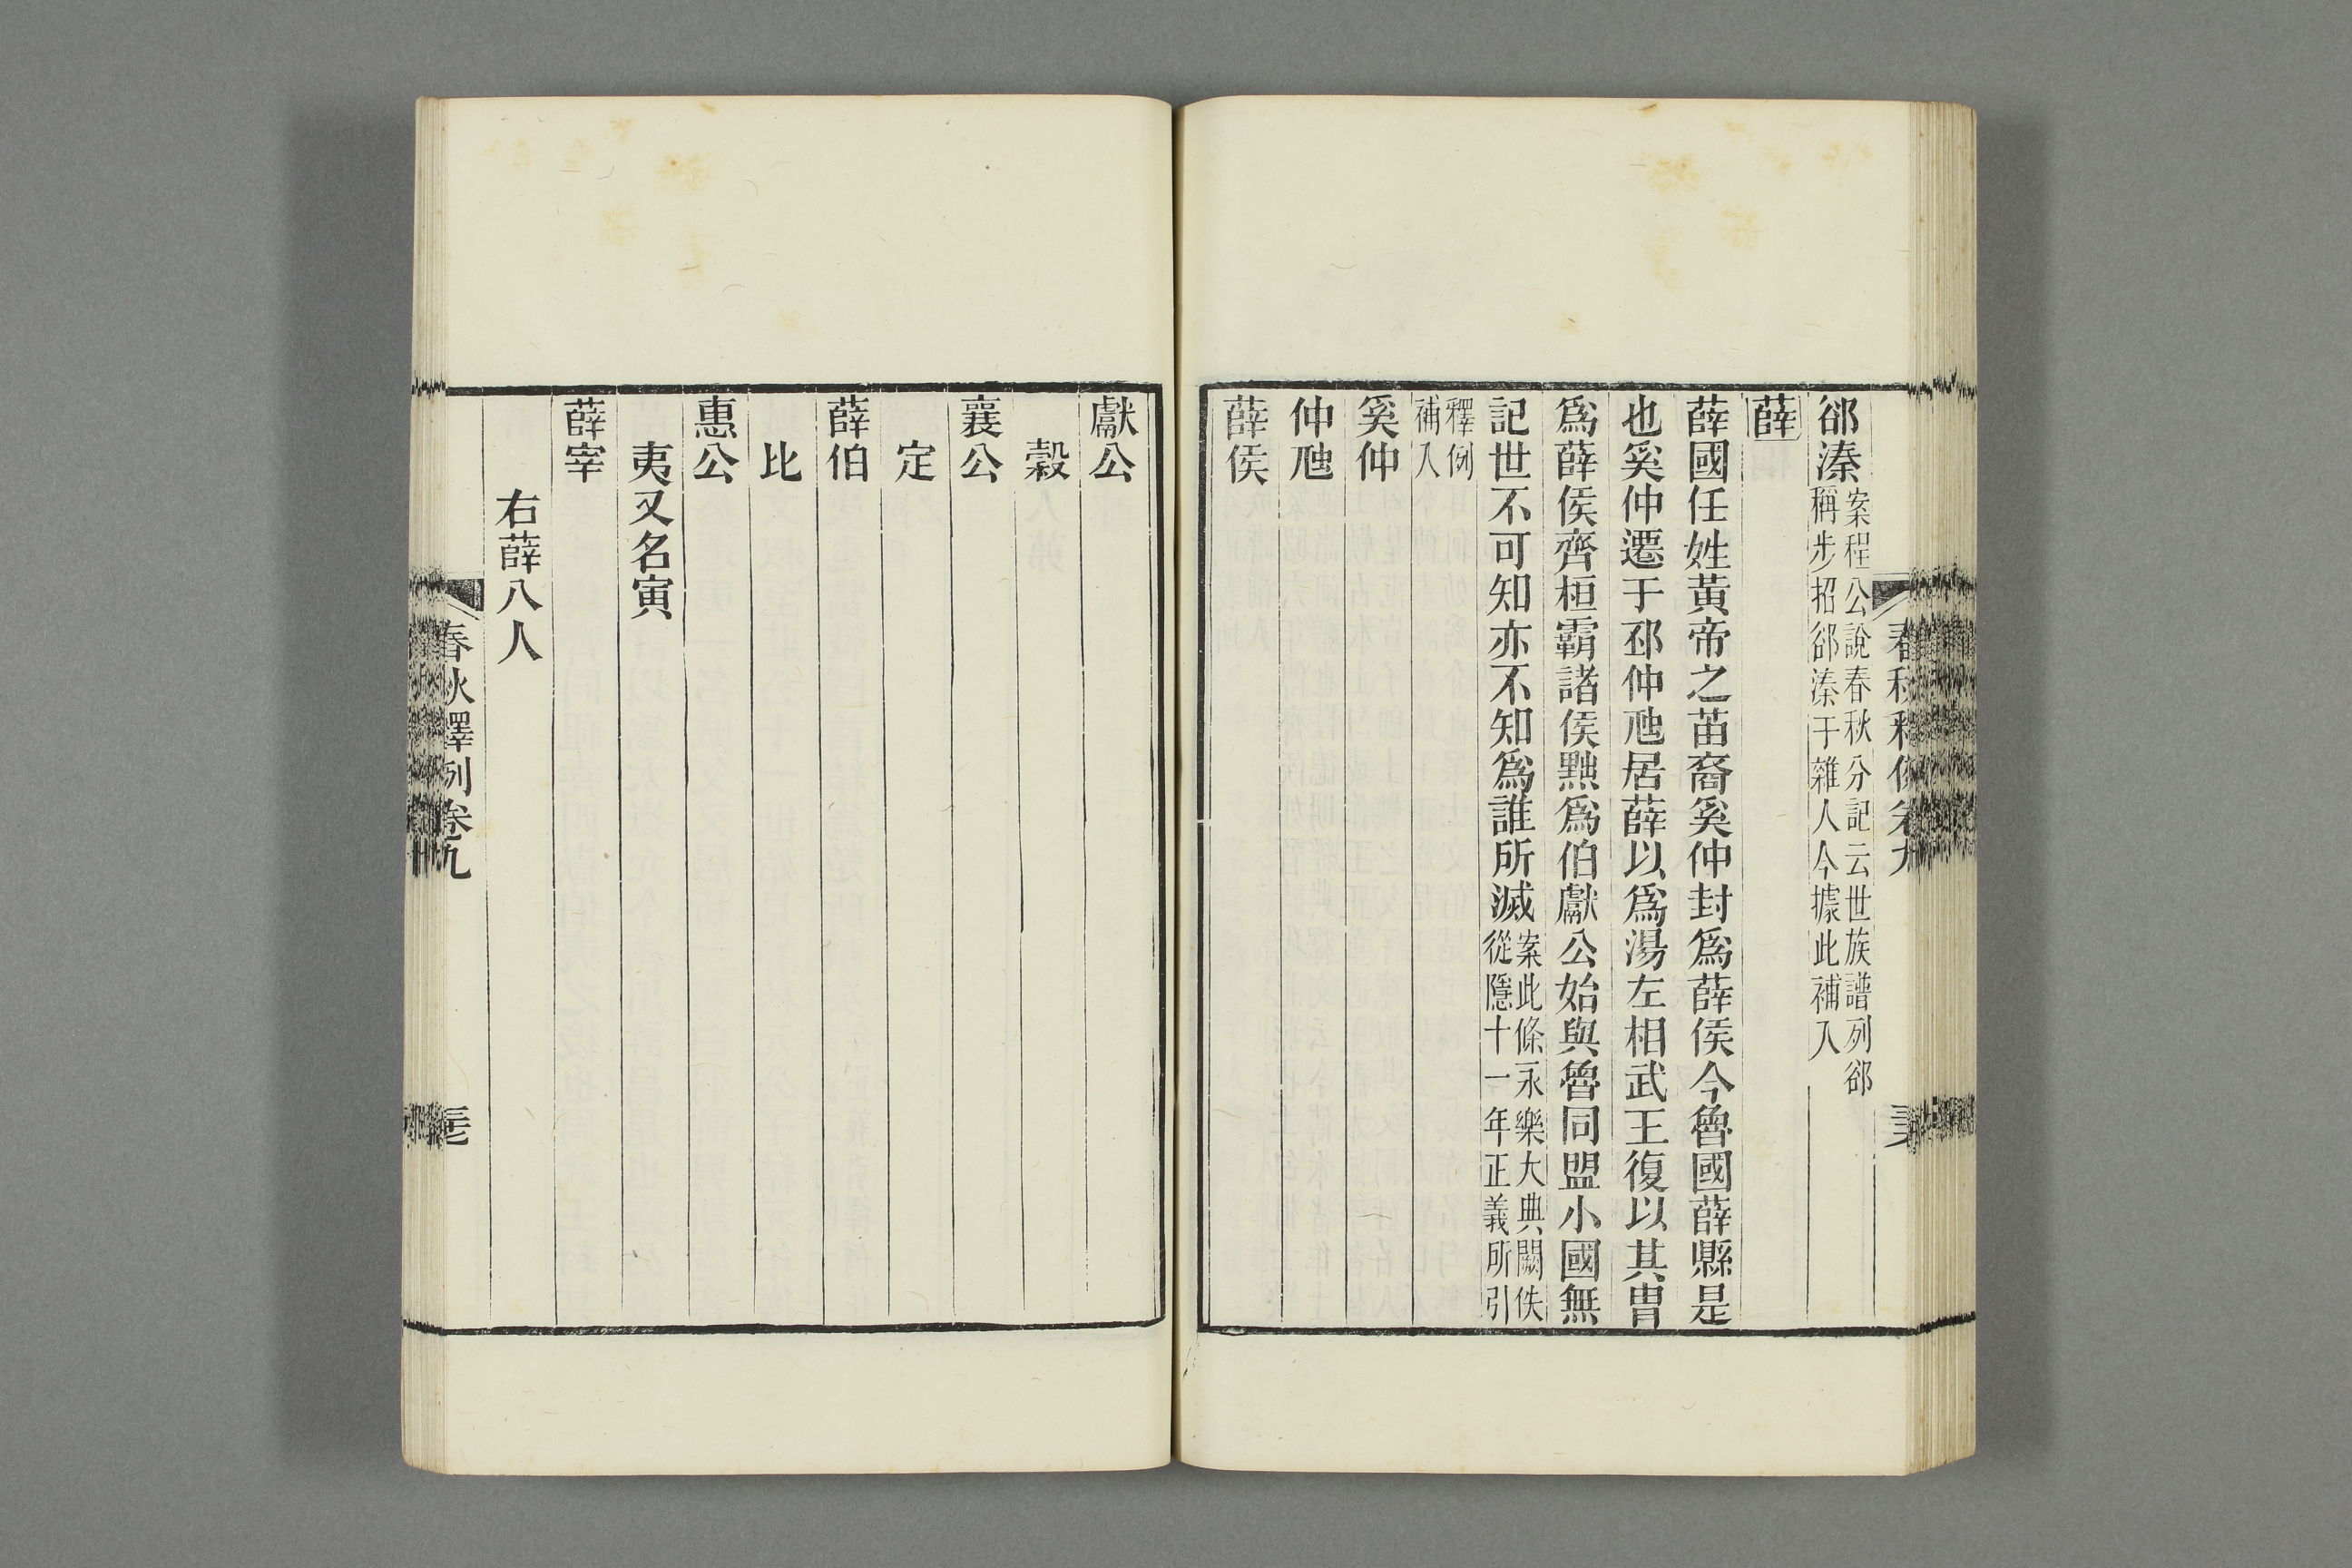 郤溱案程公說春秋分記云世族譜列郤
稱步招郤溱于雜人今據此補入
薛
薛國任姓黃帝之苗裔奚仲封爲薛侯今魯國薛縣是
也奚仲遷于邳仲虺居薛以爲湯左相武王復以其胄
爲薛侯齊桓霸諸侯黜爲伯獻公始與魯同盟小國無
記世不可知亦不知爲誰所滅案此條永樂大典闕佚
從隱十一年正義所引
釋例
補入
奚仲
仲虺
薛侯
獻公
穀
襄公
定
薛伯
比
惠公
夷又名寅
薛宰
右薛八人
春秋釋例卷九